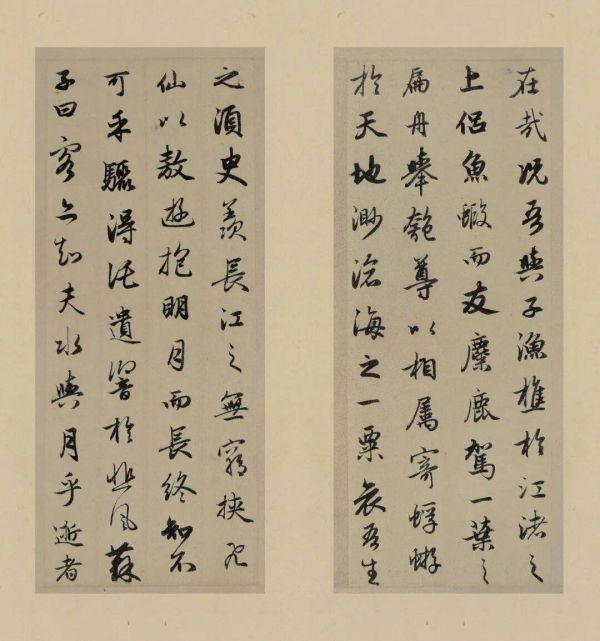 在哉況吾與子漁樵於江渚之
上侶魚蝦而友麋鹿駕一葉之
扁舟舉匏尊以相屬寄蜉蝣
於天地渺滄海之一粟哀吾生
之須臾羨長江之無窮挾飛
仙以敖遊抱明月而長終知不
可乎驟得託遺響於悲風蘇
子曰客亦知夫水與月乎逝者